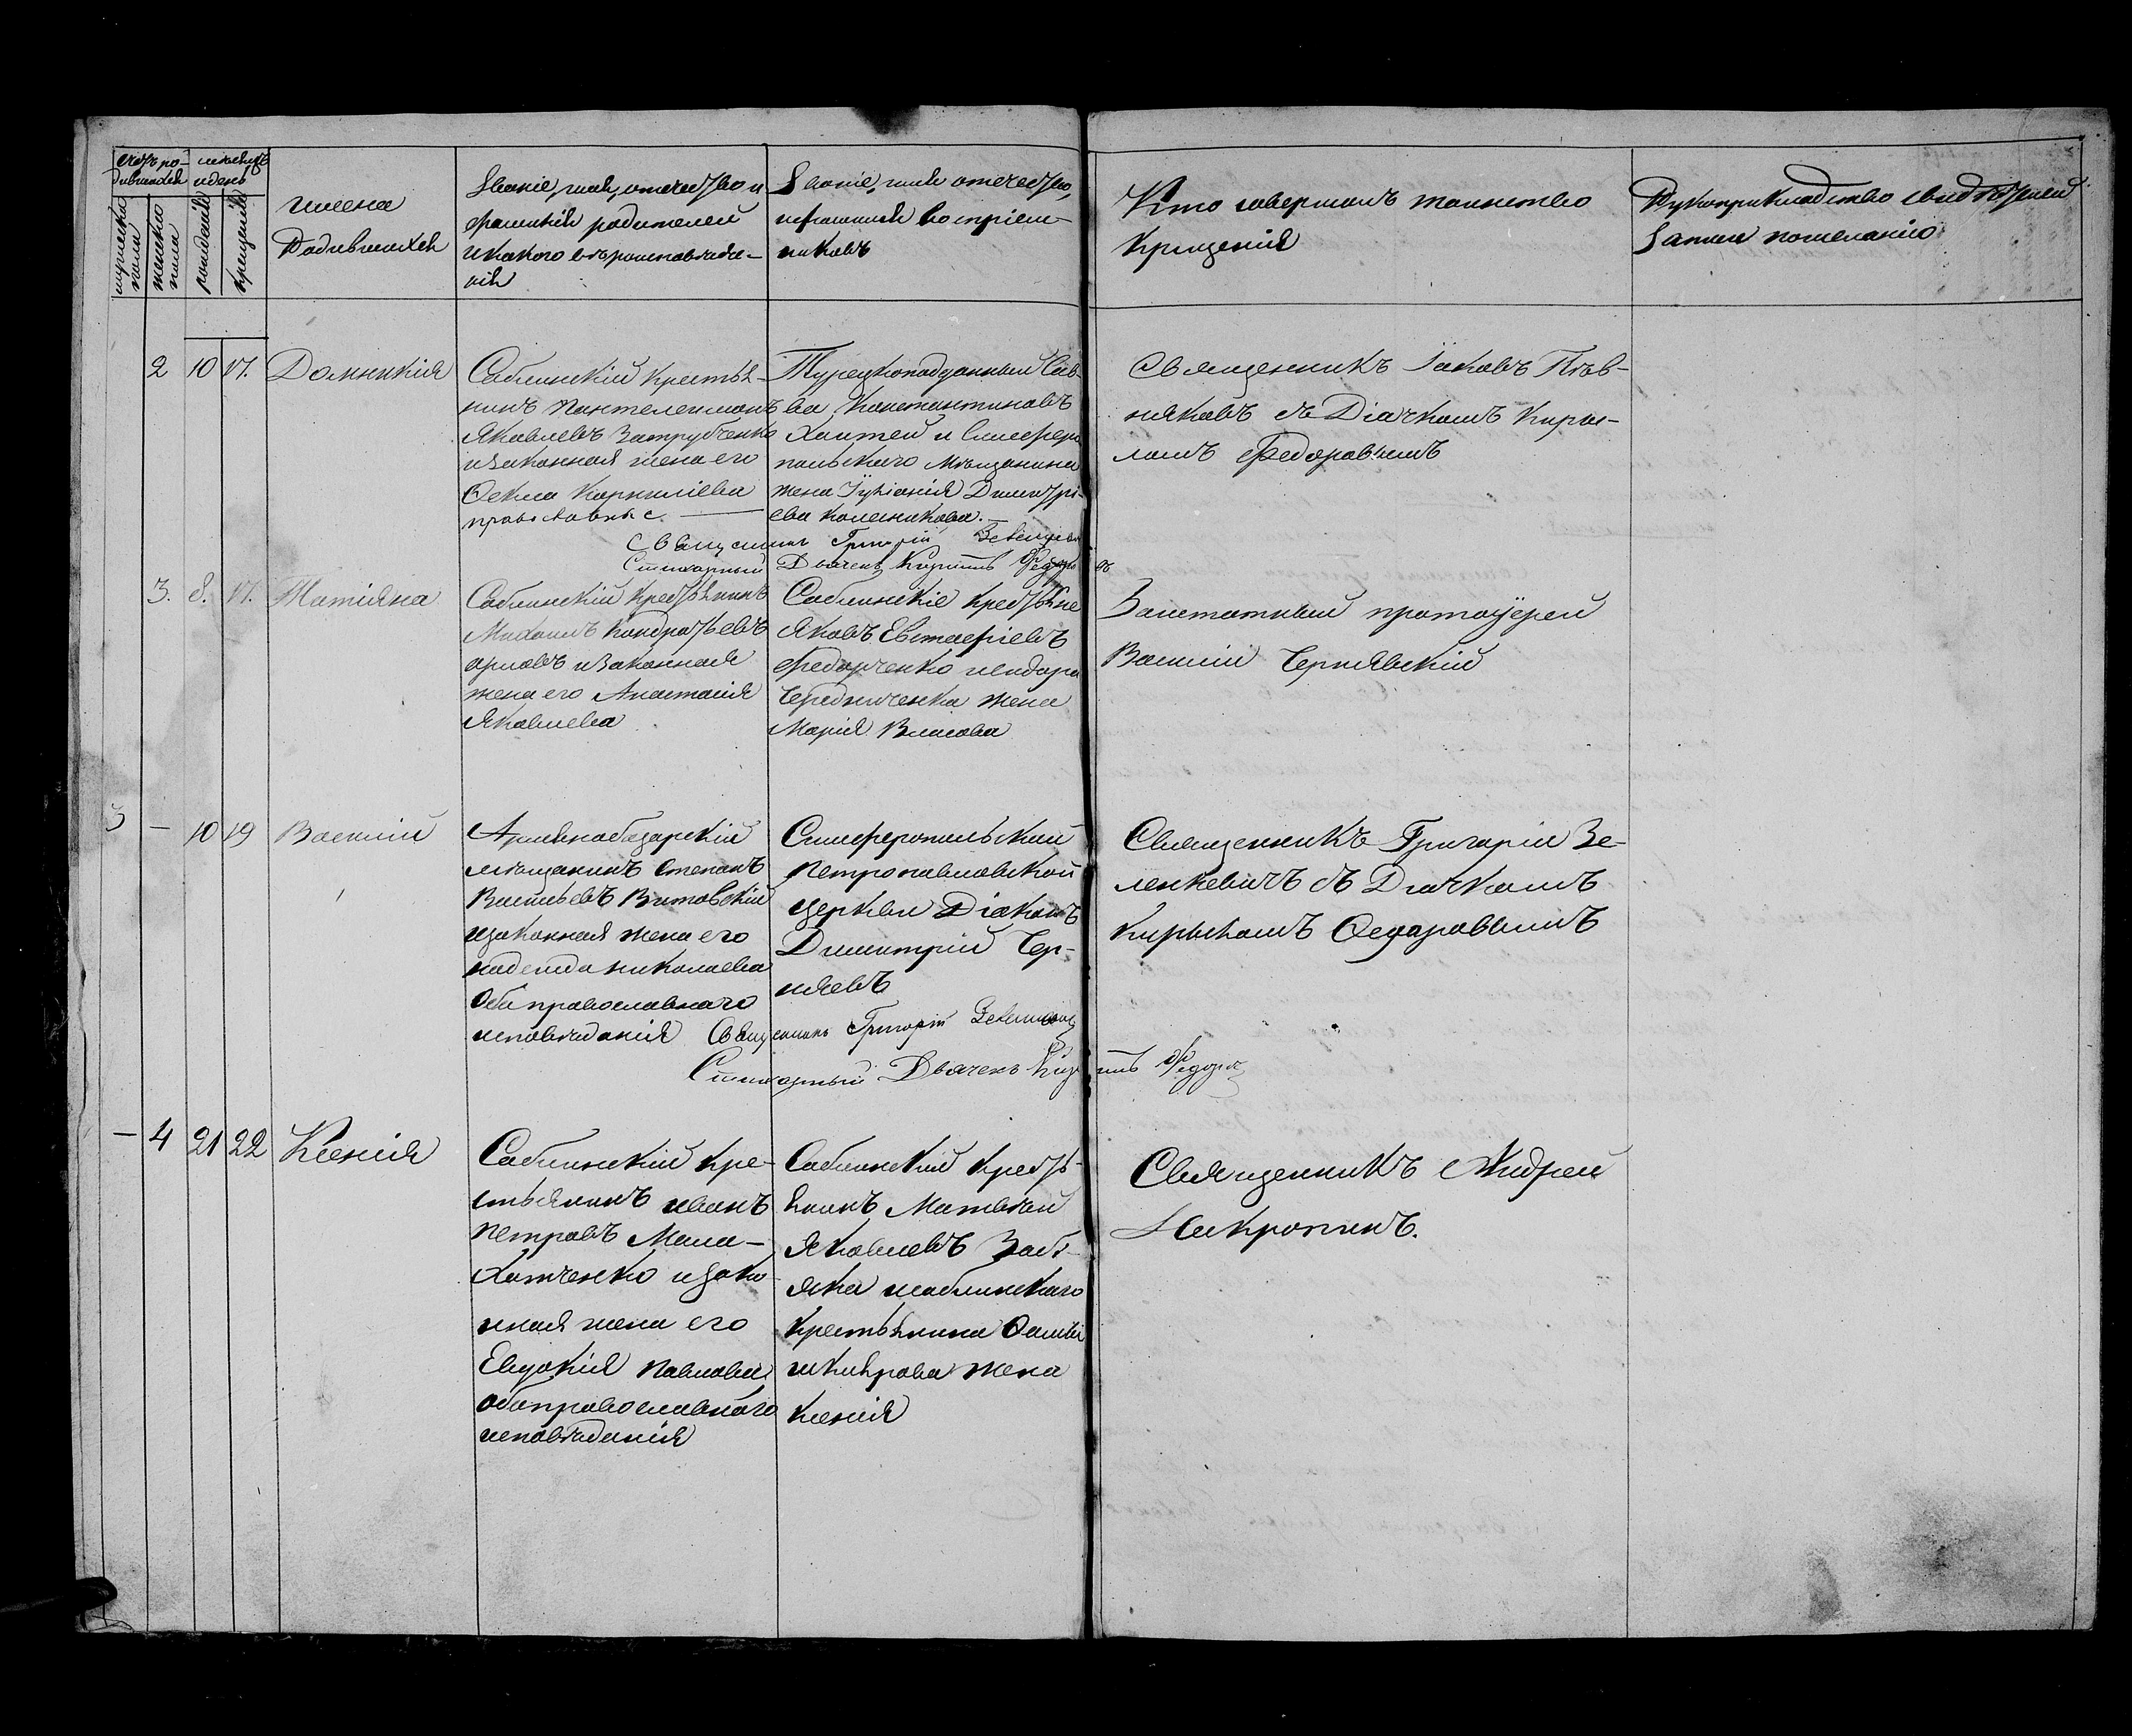 Счетъ ро-
дившихся
мѣсяцъ
и день
мужеска
пола
женско
пола
рожденія
крещенія
имена
Родившихся
Званіе, имя, отечество и
фамилія родителей
и какого вѣроисповѣда-
нія
Званіе, имя отечество,
и фамилія воспріем-
никовъ
Кто совершалъ таинство
крещенія
Рукоприкладство свидѣтелей
записи по желанію
2 10 17. Домникія
Саблинскій крестья-
нинъ Пантелеимонъ
Яковлевъ Затрубченко
и законная жена его
Ѳекла Корниліева
православные.
Турецкоподданный Сав-
ва Константиновъ
и Симферо
польскаго мѣщанина
жена Іуліанія Димитрі-
ева Колесникова.
Священникъ Іаковъ Пѣв-
няковъ съ Діачкомъ Кири-
ломъ Федоровымъ
Священникъ Григорій
Стихарный Дьячекъ Кирилъ Федоровъ
3. 8. 17. Татіяна
Саблинскій крестьянинъ
Михаилъ Кондратьевъ
Орловъ и законная
жена его Анастасія
Яковлева
Саблинскіе крестьяне
Яковъ Евстафіевъ
Федорченко и
Чередниченка жена
Марія Власова
Заштатный протоіерей
Василій Чернявскій
3 — 10 19 Василій
Армянобазарскій
мѣщанинъ Степанъ
Васильевъ Витовскій
и законная жена его
Надежда Николаева
Оба православнаго
исповѣданія
Симферопольской
Петропавловской
церкви Діаконъ
Димитрій Чер-
няевъ
Священникъ Григорій Зе-
ленкевичъ съ Діачкомъ
Кириломъ Ѳедоровымъ
Священникъ Григорій
Стихарный Дьячекъ Кирилъ Федоровъ
— 4 21 22 Ксенія
Саблинскій кре-
стьянинъ Иванъ
Петровъ Мала-
хатченко и зако-
нная жена его
Евдокія Павлова
оба православнаго
исповѣданія
Саблинскій кресть-
янинъ Матвѣй
Яковлевъ
и саблинскаго
крестьянина
жена
Ксенія
Священникъ Андрей